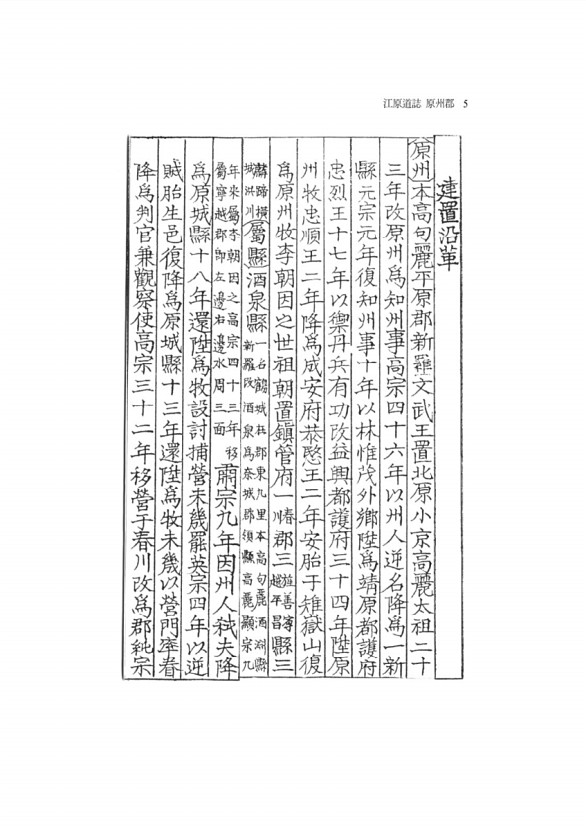 江原道誌 原州郡 5
建置沿革
原州本高句麗平原郡新羅文武王置北原小京高麗太祖二十
三年改原州爲知州事高宗四十六年以州人逆名降爲一新
縣元宗元年復知州事十年以林惟茂外鄕陞爲靖原都護府
忠烈王十七年以禦丹兵有功改益興都護府三十四年陞原
州牧忠順王二年降爲成安府恭愍王二年安胎于雉嶽山復
爲原州牧李朝因之世祖朝置鎭管府一 郡三旌善寧越平昌縣三
麟蹄橫城洪川屬縣酒泉縣一名鶴城在郡東九里本高句麗酒淵縣新羅改酒泉爲奈城郡領縣高麗顯宗九
年來屬李朝因之高宗四十三年移屬寧越郡卽左邊右邊水周三面肅宗九年因州人弑夫降
爲原城縣十八年還陞爲牧設討捕營未幾罷英宗四年以逆
賊胎生邑復降爲原城縣十三年還陞爲牧未幾以營門率眷
降爲判官兼觀察使高宗三十二年移營于春川改爲郡純宗